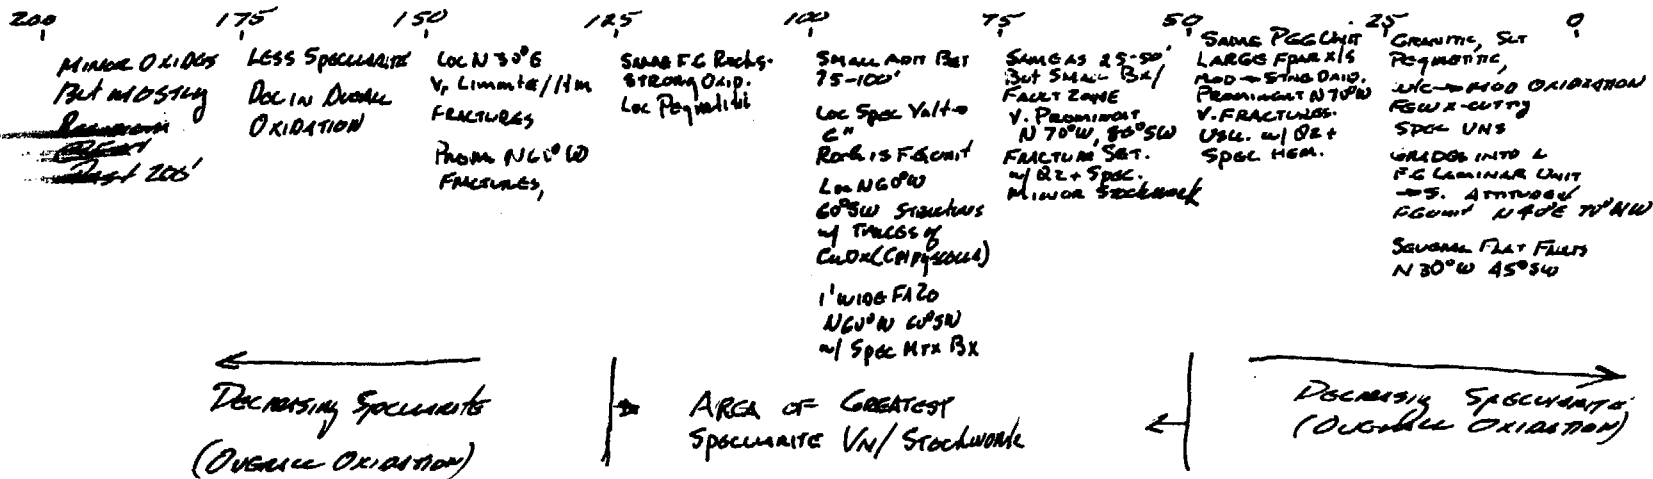 200 175 150 125 100 75 50 25 0
MINOR OXIDES
BUT MOSTLY
Past 200'
LESS SPECULARITE
DEC IN OVERALL
OXIDATION
LOC N 30°E
V, Limonite/Hm
FRACTURES
PROM N60°W
FRACTURES,
SAME F.G ROCKS.
STRONG OXID.
LOC Pegmatitic
SMALL ADIT BET
75-100'
LOC SPEC VNLT →
6"
ROCK IS F.G UNIT
LOC N60°W
60°SW STRUCTURES
w/ TRACES OF
CuOx (CHRYSOCOLLA)
1' WIDE FAZO
N60°W 60°SW
w/ SPEC MTX BX
SAME AS 25-50'
BUT SMALL BX/
FAULT ZONE
V. PROMINENT
N 70°W, 80°SW
FRACTURE SET.
w/ QZ + SPEC.
MINOR STOCKWORK
SAME PEG UNIT
LARGE FSPAR X/S
MOD → STNG OXID.
PROMINENT N 70°W
V. FRACTURES.
USU. w/ QZ +
SPEC HEM.
GRANITIC, SLT
PEGMATITIC,
WK → MOD OXIDATION
FEW X-CUTTG
SPEC VNS
GRADES INTO A
F.G LAMINAR UNIT
→ S. ATTITUDE OF
FG UNIT N 40°E 70°NW
SEVERAL FLAT FAULTS
N 30°W 45°SW
DECREASING SPECULARITE
(OVERALL OXIDATION)
AREA OF GREATEST
SPECULARITE VN/STOCKWORK
DECREASING SPECULARITE
(OVERALL OXIDATION)